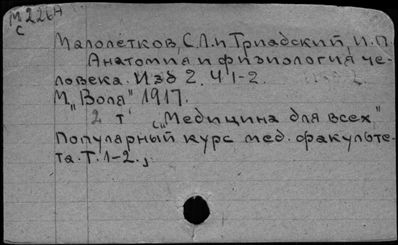 М 226А
С
Малолетков, С.Л. и Триадский, И.П.
Анатомия и физиология че-
ловека. Изд 2. Ч 1-2.
М „Воля" 1917.
2 т („Медицина для всех"
Популярный курс мед. факульте-
та. Т. 1-2.,